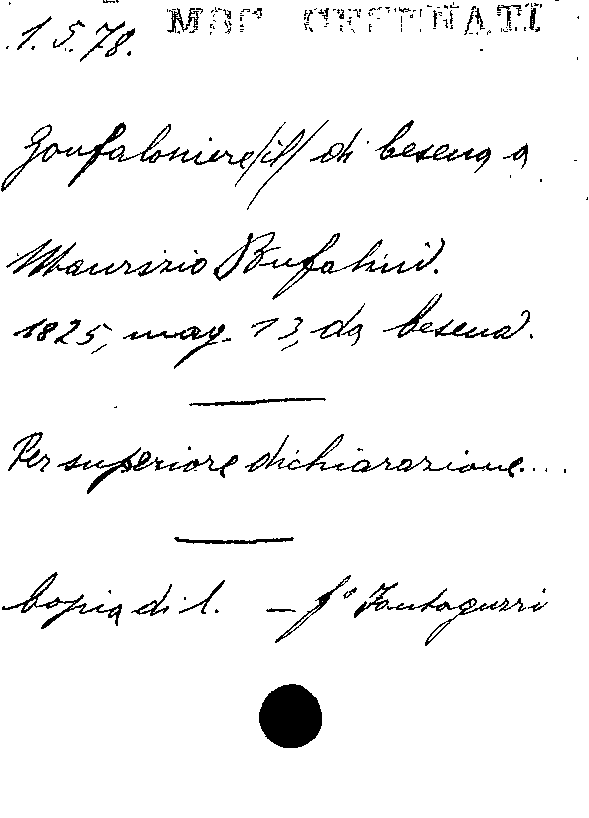 MSS. CESENATI
1.5.78.
Gonfaloniere (il) di Cesena a
Maurizio Bufalini.
1825, mag. 13, da Cesena.
Per superiore dichiarazione....
Copia di l. — fº Fantaguzzi